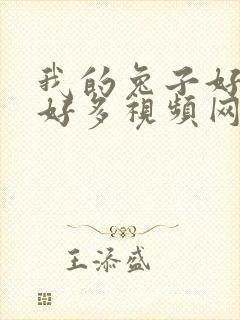 我的兔子好
好多視頻网
王添盛